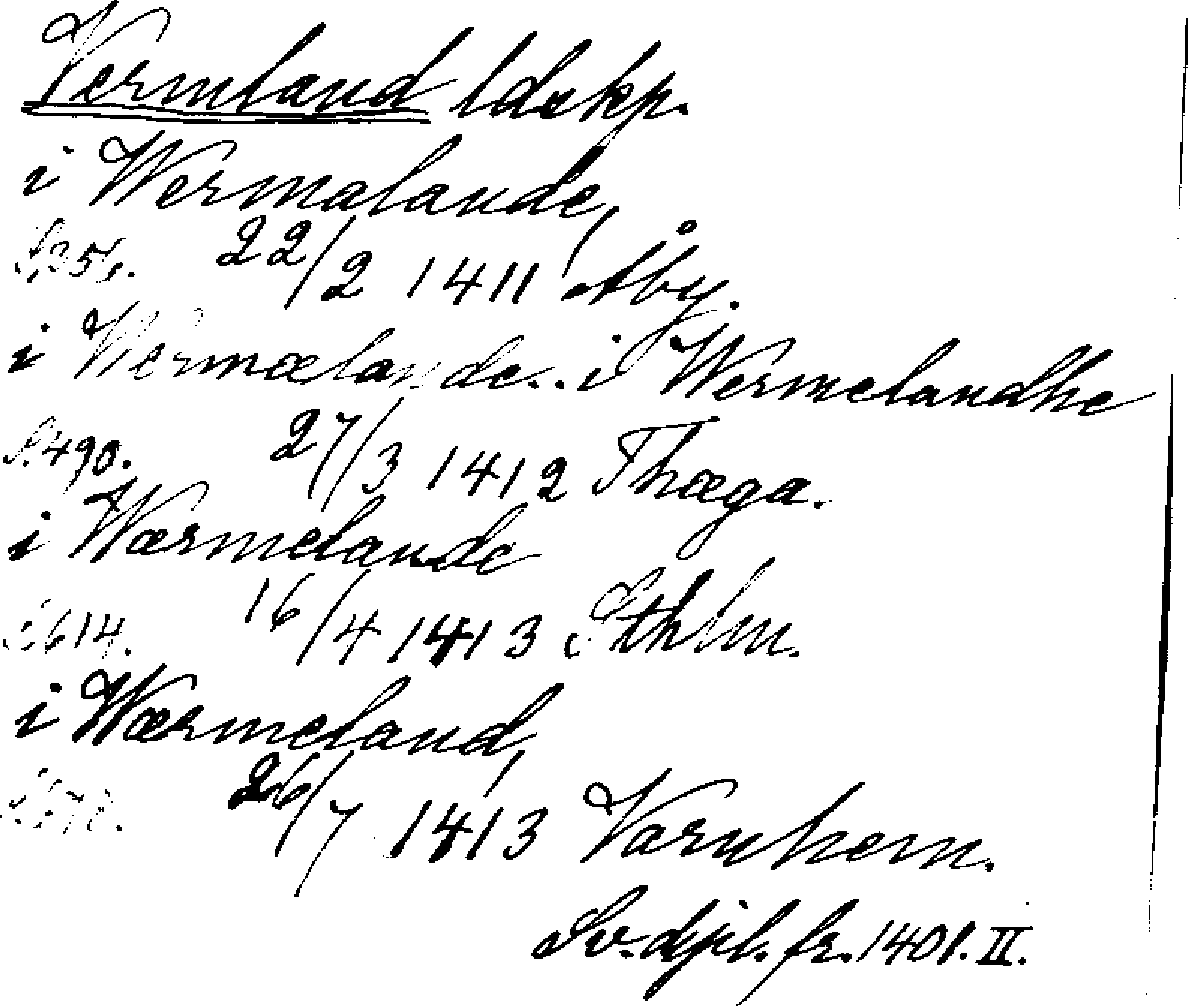 Vermland ldskp.
i Wermalande,
22/2 1411 Åby.
i Wermælande.. i Wermelandhe
S. 490. 27/3 1412 Thæga.
i Wærmelande
S. 614. 16/4 1413 Sthlm.
i Wærmeland,
26/7 1413 Varnhem.
Sv. dipl. fr. 1401. II.